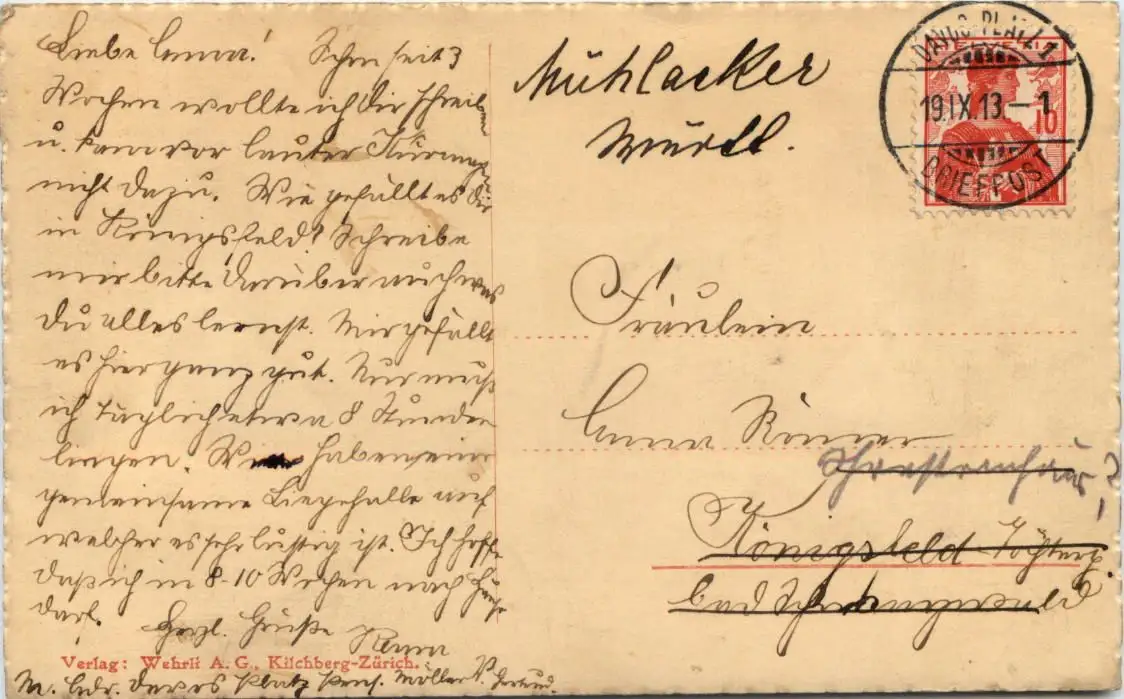 Liebe Anna! Schon seit 3
Wochen wollte ich dir schreiben
u. kam vor lauter
nicht dazu. Wie gefällt es dir
in Königsfeld? Schreibe
mir bitte darüber auch was
du alles lernst. Mir gefällt
es hier ganz gut. Nur muß
ich täglich etwa 8 Stunden
liegen. Wir haben eine
gemeinsame Liegehalle auf
welcher es sehr lustig ist. Ich hoffe
daß ich in 8-10 Wochen nach Hause
darf.
Herzl. Grüße
M. Adr. Davos Platz Pens.
Verlag: Wehrli A.G., Kilchberg-Zürich.
Mühlacker
Württ.
DAVOS-PLATZ 1
HELVETIA
19.IX.13.–1
10
BRIEFPOST
Fräulein
Anna
Schwesternhaus?
Königsfeld